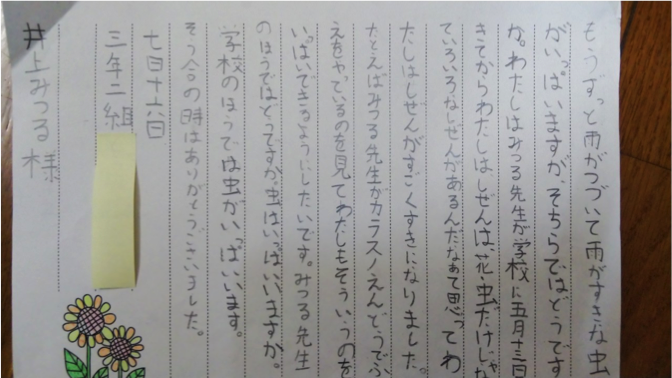 もうずっと雨がつづいて雨がすきな虫
がいっぱいますが、そちらではどうです
か。わたしはみつる先生が学校に五月十三日
きてからわたしは、しぜんは、花・虫だけじゃ
ていろいろなしぜんがあるんだなあて思ってわ
たしはしぜんがすごくすきになりました。
たとえばみつる先生がカラスノえんどうでふ
えをやっているのを見てわたしもそういうのを
いっぱいできるようにしたいです。みつる先生
のほうではどうですか、虫はいっぱいいますか。
学校のほうでは虫がいっぱいいます。
そう合の時はありがとうございました。
七月十六日
三年二組
井上みつる様